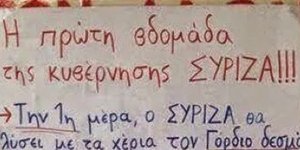 Η πρώτη εβδομάδα
της κυβέρνησης ΣΥΡΙΖΑ!!!
→ Την 1η μέρα, ο ΣΥΡΙΖΑ θα
λύσει με τα χέρια τον Γόρδιο δεσμό